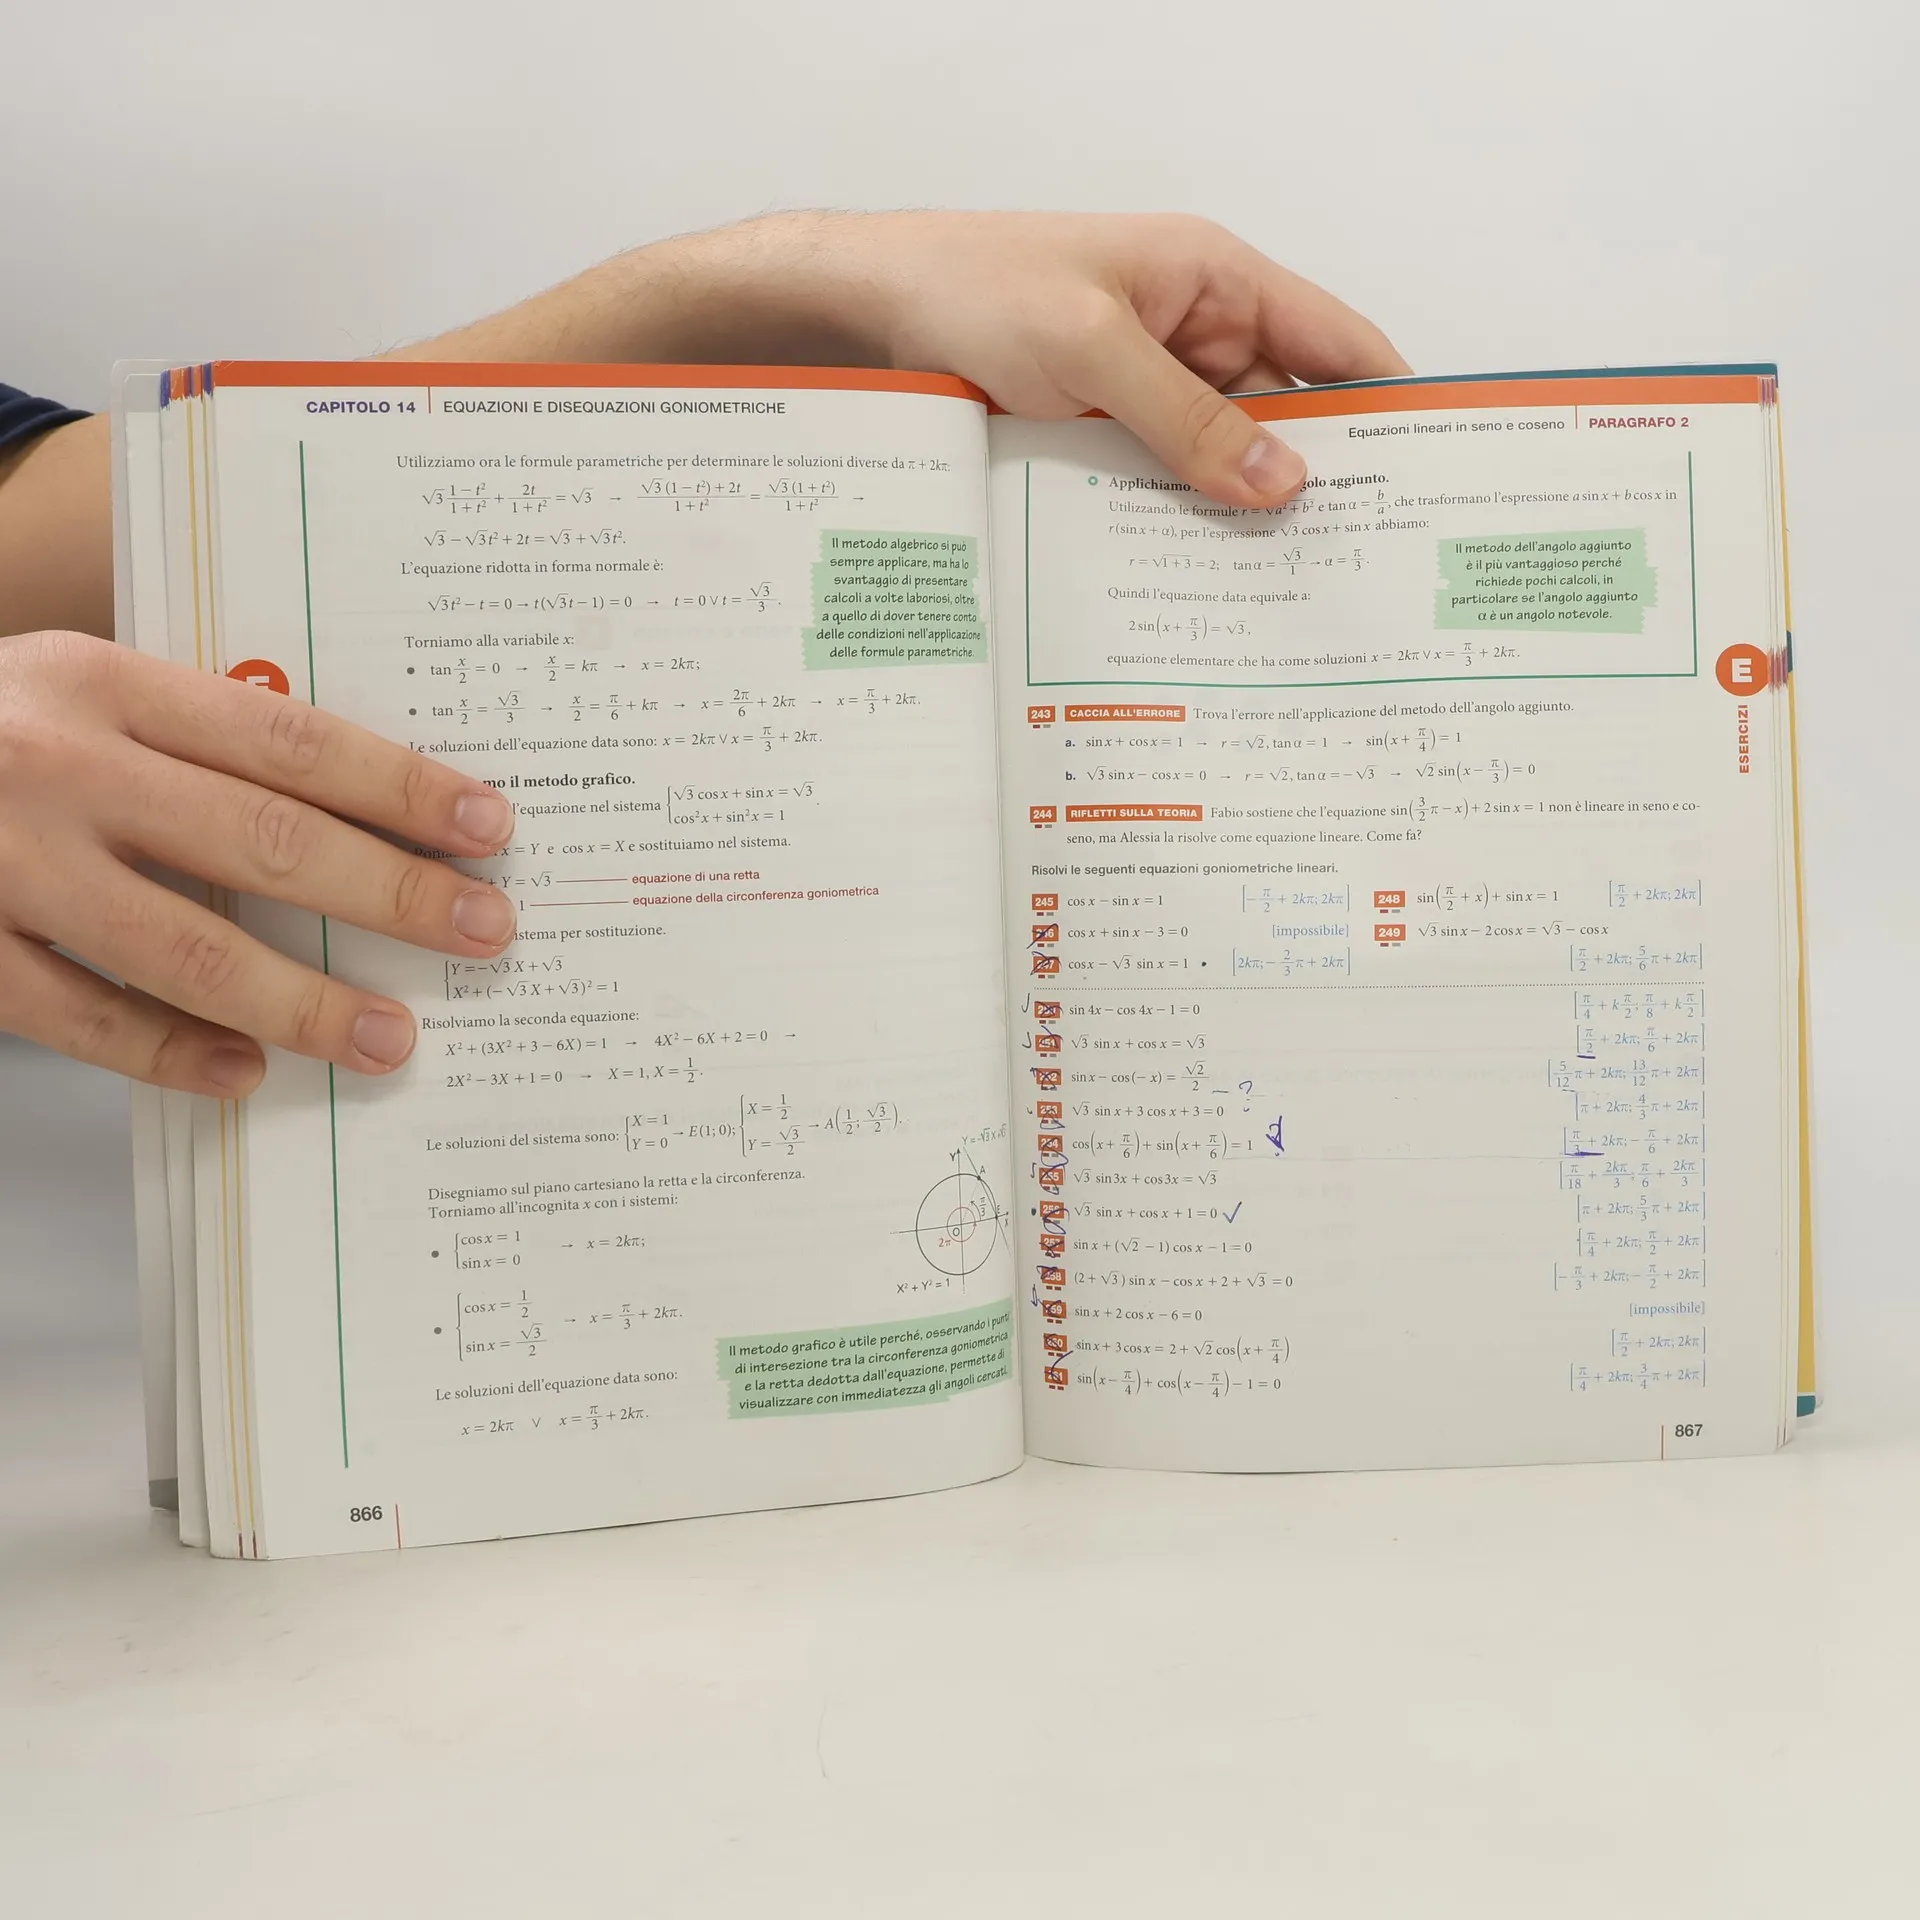 CAPITOLO 14 EQUAZIONI E DISEQUAZIONI GONIOMETRICHE
Utilizziamo ora le formule parametriche per determinare le soluzioni diverse da π + 2kπ:
√3 (1 − t²)/(1 + t²) + 2t/(1 + t²) = √3 → (√3(1 − t²) + 2t)/(1 + t²) = √3(1 + t²)/(1 + t²) →
√3 − √3t² + 2t = √3 + √3t².
L'equazione ridotta in forma normale è:
√3t² − t = 0 → t(√3t − 1) = 0 → t = 0 ∨ t = √3/3.
Il metodo algebrico si può
sempre applicare, ma ha lo
svantaggio di presentare
calcoli a volte laboriosi, oltre
a quello di dover tenere conto
delle condizioni nell'applicazione
delle formule parametriche.
Torniamo alla variabile x:
• tan x/2 = 0 → x/2 = kπ → x = 2kπ;
• tan x/2 = √3/3 → x/2 = π/6 + kπ → x = 2π/6 + 2kπ → x = π/3 + 2kπ.
Le soluzioni dell'equazione data sono: x = 2kπ ∨ x = π/3 + 2kπ.
il metodo grafico.
l'equazione nel sistema { √3 cos x + sin x = √3
cos²x + sin²x = 1 .
x = Y e cos x = X e sostituiamo nel sistema.
+ Y = √3 equazione di una retta
1 equazione della circonferenza goniometrica
per sostituzione.
{ Y = −√3X + √3
X² + (−√3X + √3)² = 1
Risolviamo la seconda equazione:
X² + (3X² + 3 − 6X) = 1 → 4X² − 6X + 2 = 0 →
2X² − 3X + 1 = 0 → X = 1, X = 1/2.
Le soluzioni del sistema sono: { X = 1 Y = 0 → E(1; 0); { X = 1/2 Y = √3/2 → A(1/2; √3/2).
Disegniamo sul piano cartesiano la retta e la circonferenza.
Torniamo all'incognita x con i sistemi:
• { cos x = 1
sin x = 0 → x = 2kπ;
• { cos x = 1/2
sin x = √3/2 → x = π/3 + 2kπ.
Y
A
π/3
E
X
O
2π
X² + Y² = 1
Il metodo grafico è utile perché, osservando i punti
di intersezione tra la circonferenza goniometrica
e la retta dedotta dall'equazione, permette di
visualizzare con immediatezza gli angoli cercati.
Le soluzioni dell'equazione data sono:
x = 2kπ ∨ x = π/3 + 2kπ.
866
Equazioni lineari in seno e coseno PARAGRAFO 2
Applichiamo aggiunto.
Utilizzando le formule r = √a² + b² e tan α = b/a, che trasformano l'espressione a sin x + b cos x in
r(sin x + α), per l'espressione √3 cos x + sin x abbiamo:
r = √1 + 3 = 2; tan α = √3/1 → α = π/3.
Quindi l'equazione data equivale a:
2 sin(x + π/3) = √3,
equazione elementare che ha come soluzioni x = 2kπ ∨ x = π/3 + 2kπ.
Il metodo dell'angolo aggiunto
è il più vantaggioso perché
richiede pochi calcoli, in
particolare se l'angolo aggiunto
α è un angolo notevole.
E
ESERCIZI
243 CACCIA ALL'ERRORE Trova l'errore nell'applicazione del metodo dell'angolo aggiunto.
a. sin x + cos x = 1 → r = √2, tan α = 1 → sin(x + π/4) = 1
b. √3 sin x − cos x = 0 → r = √2, tan α = −√3 → √2 sin(x − π/3) = 0
244 RIFLETTI SULLA TEORIA Fabio sostiene che l'equazione sin(3/2 π − x) + 2 sin x = 1 non è lineare in seno e co-
seno, ma Alessia la risolve come equazione lineare. Come fa?
Risolvi le seguenti equazioni goniometriche lineari.
245 cos x − sin x = 1 [−π/2 + 2kπ; 2kπ]
246 cos x + sin x − 3 = 0 [impossibile]
247 cos x − √3 sin x = 1 [2kπ; −2/3 π + 2kπ]
248 sin(π/2 + x) + sin x = 1 [π/2 + 2kπ; 2kπ]
249 √3 sin x − 2 cos x = √3 − cos x [π/2 + 2kπ; 5/6 π + 2kπ]
250 sin 4x − cos 4x − 1 = 0 [π/4 + k π/2; π/8 + k π/2]
251 √3 sin x + cos x = √3 [π/2 + 2kπ; π/6 + 2kπ]
252 sin x − cos(−x) = √2/2 [5/12 π + 2kπ; 13/12 π + 2kπ]
253 √3 sin x + 3 cos x + 3 = 0 ? [π + 2kπ; 4/3 π + 2kπ]
254 cos(x + π/6) + sin(x + π/6) = 1 [π/3 + 2kπ; −π/6 + 2kπ]
255 √3 sin 3x + cos 3x = √3 [π/18 + 2kπ/3; π/6 + 2kπ/3]
256 √3 sin x + cos x + 1 = 0 ✓ [π + 2kπ; 5/3 π + 2kπ]
257 sin x + (√2 − 1) cos x − 1 = 0 [π/4 + 2kπ; π/2 + 2kπ]
258 (2 + √3) sin x − cos x + 2 + √3 = 0 [−π/3 + 2kπ; −π/2 + 2kπ]
259 sin x + 2 cos x − 6 = 0 [impossibile]
260 sin x + 3 cos x = 2 + √2 cos(x + π/4) [π/2 + 2kπ; 2kπ]
261 sin(x − π/4) + cos(x − π/4) − 1 = 0 [π/4 + 2kπ; 3/4 π + 2kπ]
867